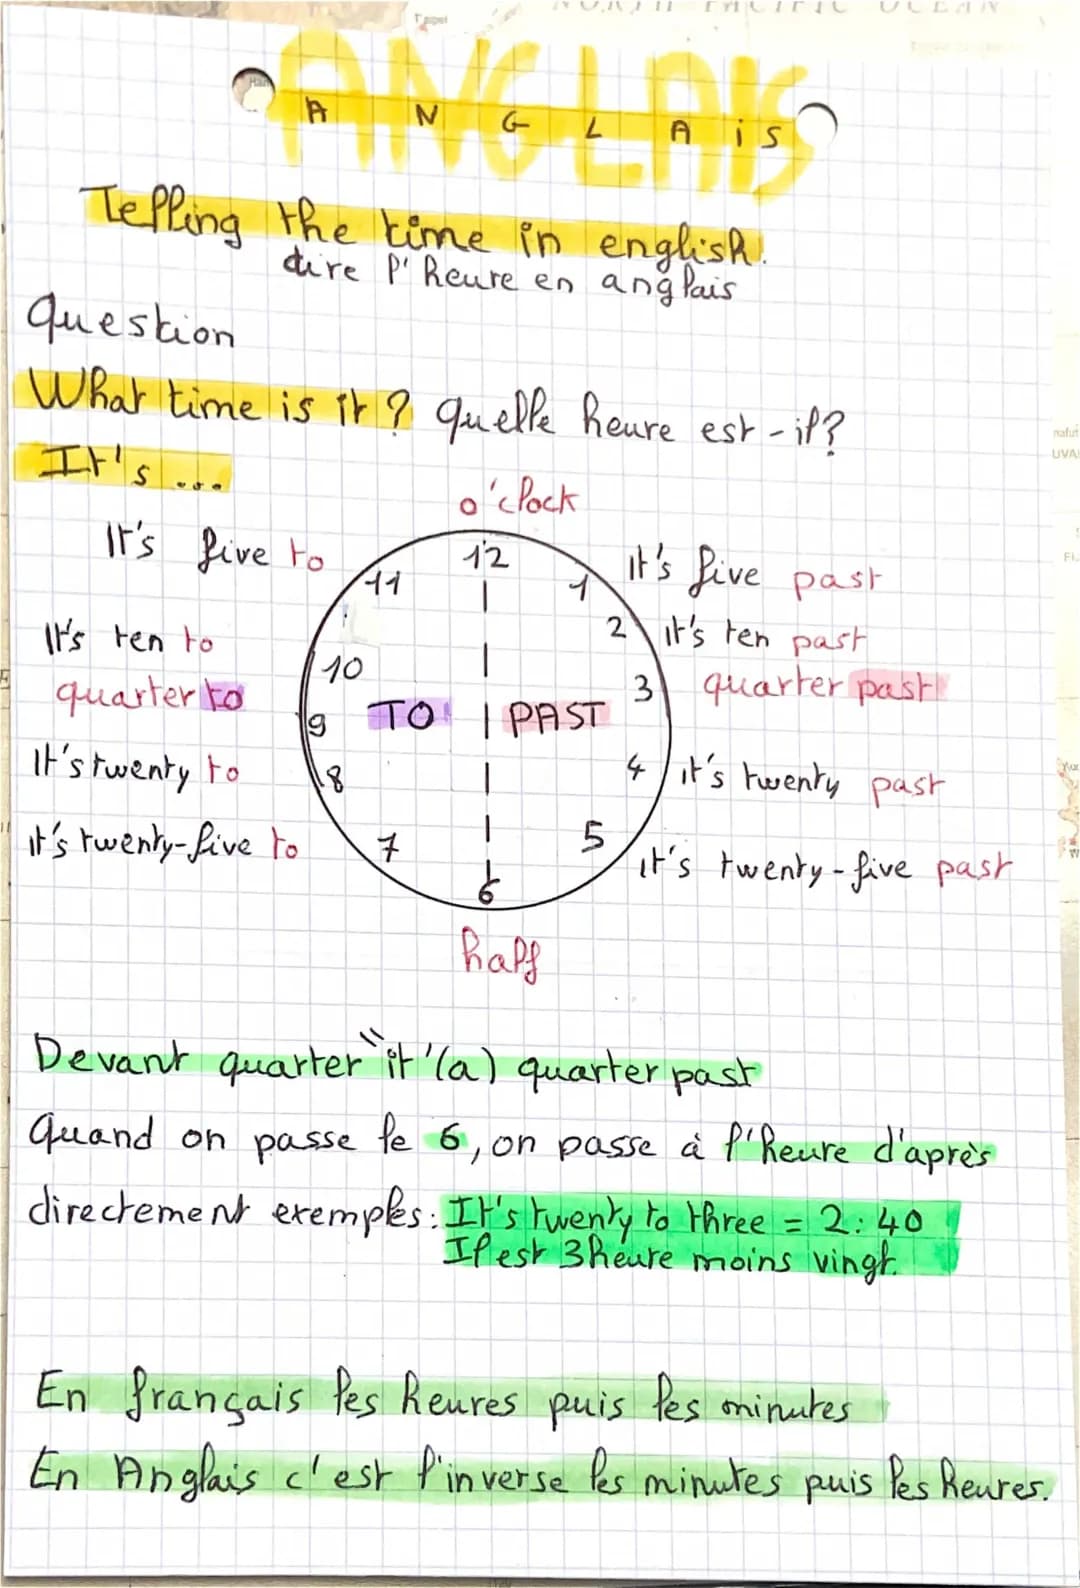 NORTH PACIFIC OCEAN
Taipei
ANGLAIS
A N G L A i S
Telling the time in english.
dire l'heure en anglais
Question
What time is it ? quelle heure est-il?
It's ...
o'clock
It's five to
12
it's five past
11
1
It's ten to
2
it's ten past
10
quarter to
3
quarter past
9
TO
PAST
It's twenty to
8
4
it's twenty past
it's twenty-five to
7
5
it's twenty-five past
6
half
Devant quarter "it'(a) quarter past
Quand on passe le 6, on passe à l'heure d'après
directement exemples: It's twenty to three = 2:40
Il est 3heure moins vingt.
En français les heures puis les minutes
En Anglais c'est l'inverse les minutes puis les heures.